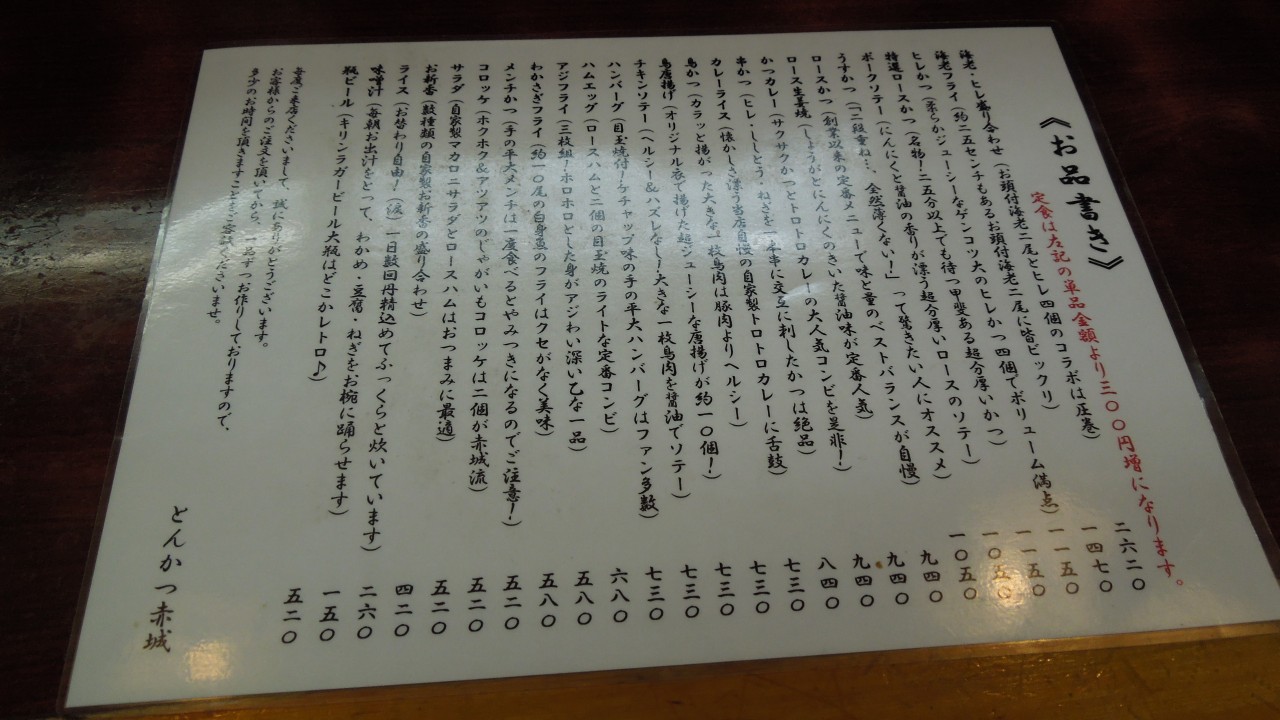 《お品書き》
定食は左記の単品金額より三〇〇円増になります。
海老・ヒレ盛り合わせ（お頭付海老二尾とヒレ四個のコラボは圧巻） 二六二〇
海老フライ（約二五センチもあるお頭付海老二尾に皆ビックリ） 一四七〇
ヒレかつ（柔らかジューシーなゲンコツ大のヒレかつ四個でボリューム満点） 一一五〇
特選ロースかつ（名物！二五分以上でも待つ甲斐ある超分厚いかつ） 一一五〇
ポークソテー（にんにくと醤油の香りが漂う超分厚いロースのソテー） 一〇五〇
うすかつ（「二段重ね…、全然薄くない！」って驚きたい人にオススメ） 一〇五〇
ロースかつ（創業以来の定番メニューで味と量のベストバランスが自慢） 九四〇
ロース生姜焼（しょうがとにんにくのきいた醤油味が定番人気） 九四〇
かつカレー（サクサクかつとトロトロカレーの大人気コンビを是非！） 九四〇
串かつ（ヒレ・ししとう・ねぎを一本串に交互に刺したかつは絶品） 八四〇
カレーライス（懐かしさ漂う当店自慢の自家製トロトロカレーに舌鼓） 七三〇
鳥かつ（カラッと揚がった大きな一枚鳥肉は豚肉よりヘルシー） 七三〇
鳥唐揚げ（オリジナル衣で揚げた超ジューシーな唐揚げが約一〇個！） 七三〇
チキンソテー（ヘルシー＆ハズレなし！大きな一枚鳥肉を醤油でソテー） 七三〇
ハンバーグ（目玉焼付！ケチャップ味の手の平大ハンバーグはファン多数） 七三〇
ハムエッグ（ロースハムと二個の目玉焼のライトな定番コンビ） 六八〇
アジフライ（三枚組！ホロホロとした身がアジわい深い乙な一品） 五八〇
わかさぎフライ（約一〇尾の白身魚のフライはクセがなく美味） 五八〇
メンチかつ（手の平大メンチは一度食べるとやみつきになるのでご注意！） 五二〇
コロッケ（ホクホク＆アツアツのじゃがいもコロッケは二個が赤城流） 五二〇
サラダ（自家製マカロニサラダとロースハムはおつまみに最適） 五二〇
お新香（数種類の自家製お新香の盛り合わせ） 四二〇
ライス（お替わり自由！（笑）一日数回丹精込めてふっくらと炊いています） 二六〇
味噌汁（毎朝お出汁をとって、わかめ・豆腐・ねぎをお椀に踊らせます） 一五〇
瓶ビール（キリンラガービール大瓶はどこかレトロ♪） 五二〇
毎度ご来店くださいまして、誠にありがとうございます。
お客様からのご注文を頂いてから、一品ずつお作りしておりますので、
多少のお時間を頂きますことをご容赦くださいませ。
とんかつ赤城